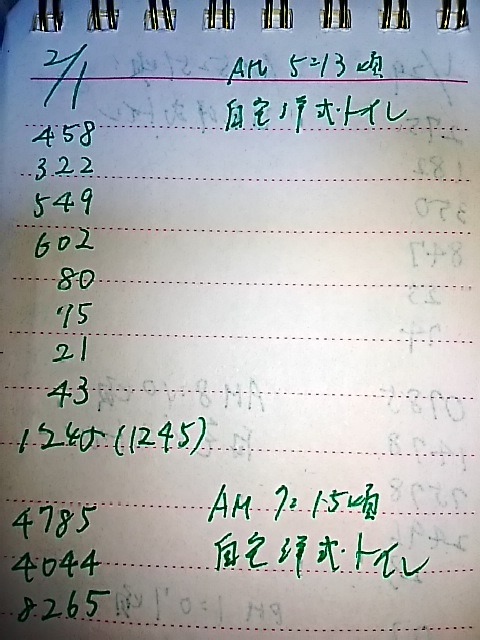 2/1 AM 5:13頃
自宅洋式トイレ
458
322
549
602
80
75
21
43
1245(1245)
AM 7:15頃
4785
自宅洋式・トイレ
4044
8265